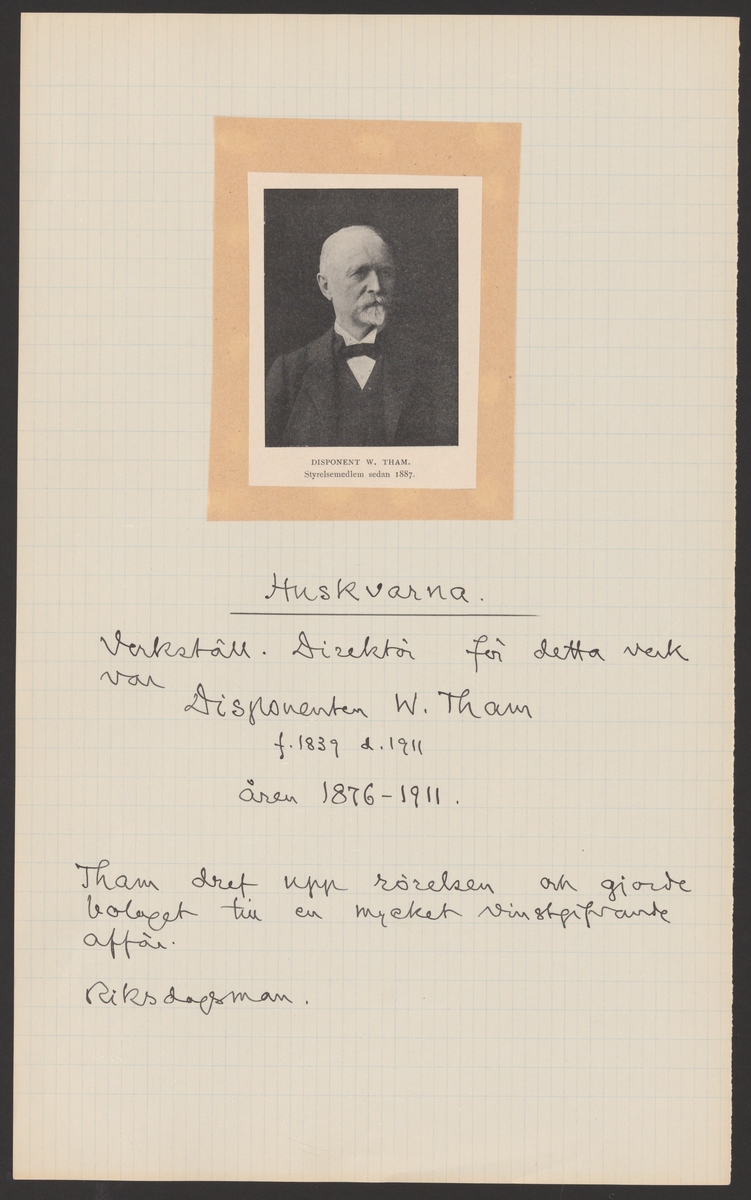 DISPONENT W. THAM.
Styrelsemedlem sedan 1887.
Huskvarna.
Verkställ. Direktör för detta verk
var
Disponenten W. Tham
f. 1839 d. 1911
åren 1876-1911.
Tham dref upp rörelsen och gjorde
bolaget till en mycket vinstgifvande
affär.
Riksdagsman.